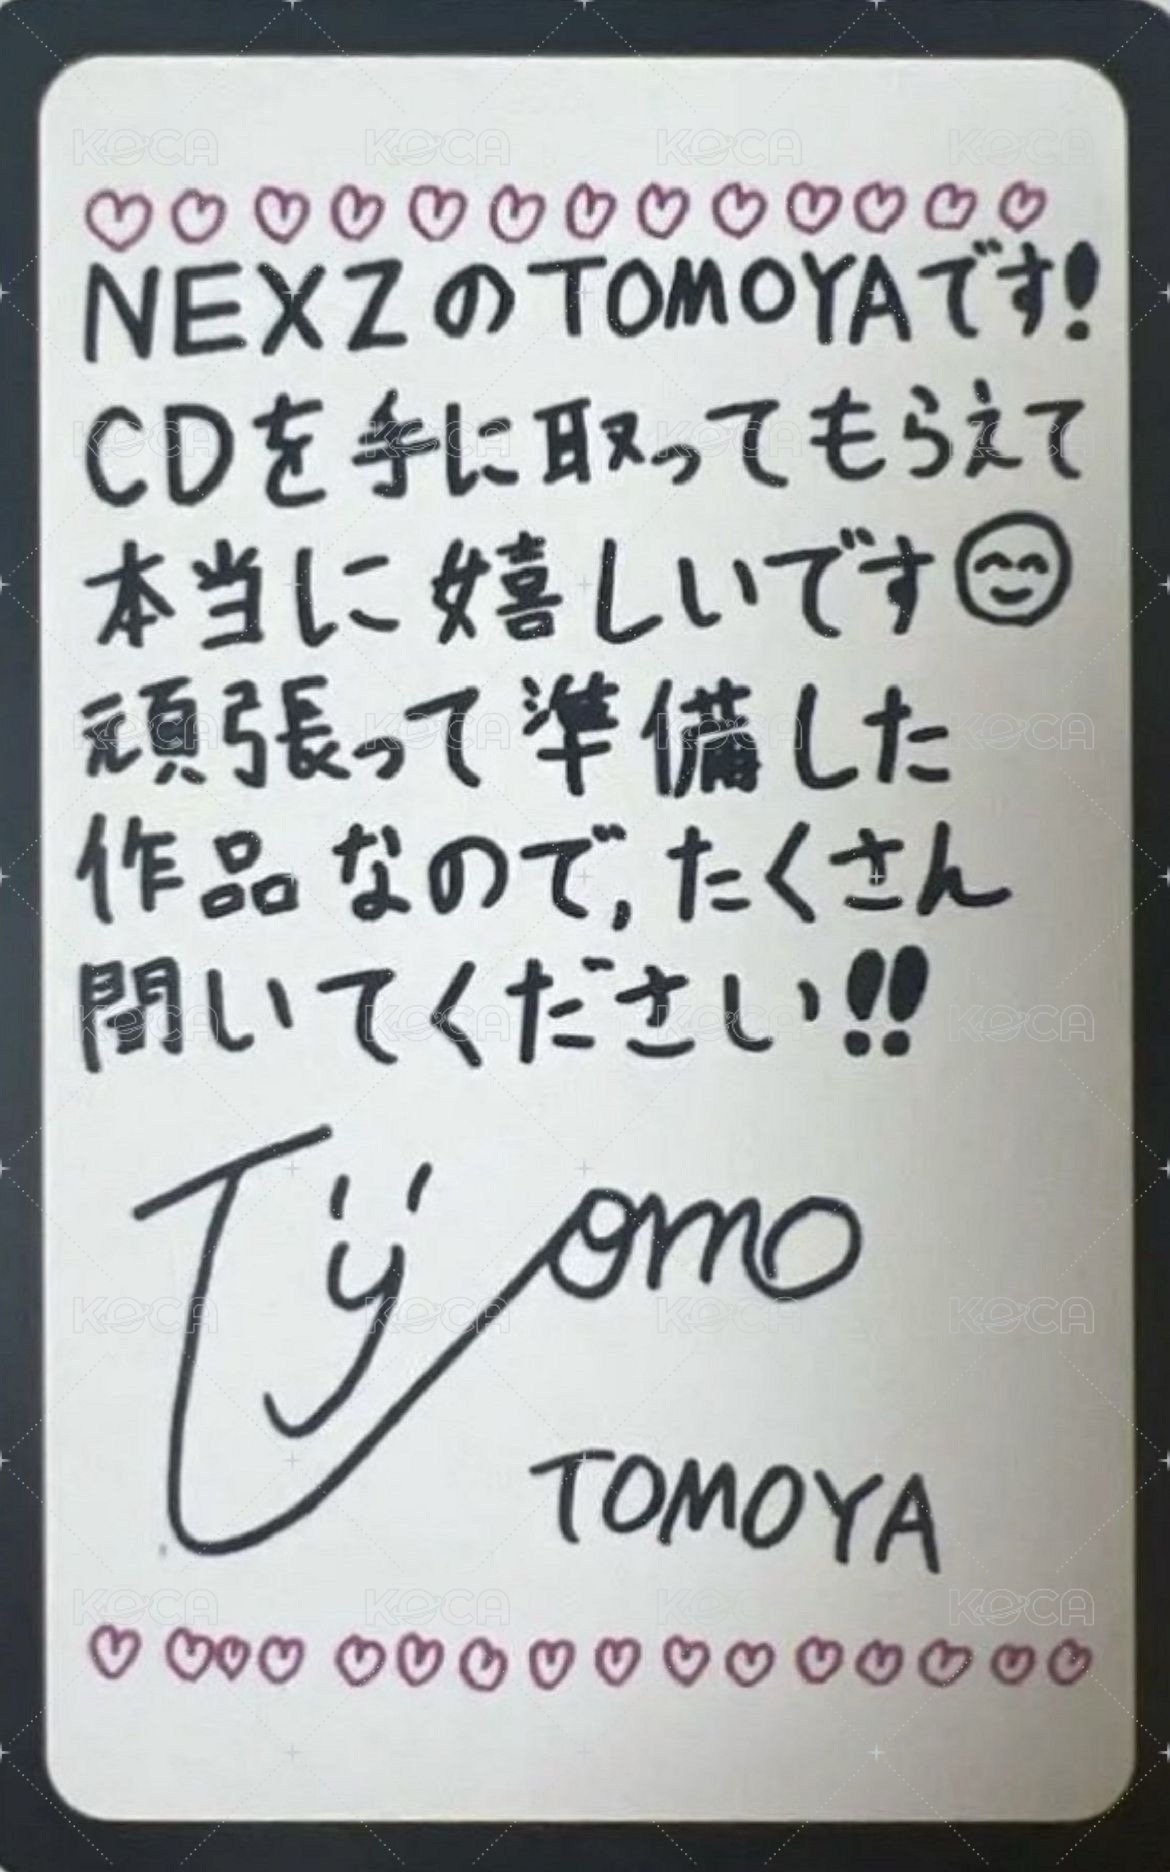 NEXZのTOMOYAです!
CDを手に取ってもらえて
本当に嬉しいです
頑張って準備した
作品なので,たくさん
聞いてください!!
Tomo
TOMOYA
KOCA